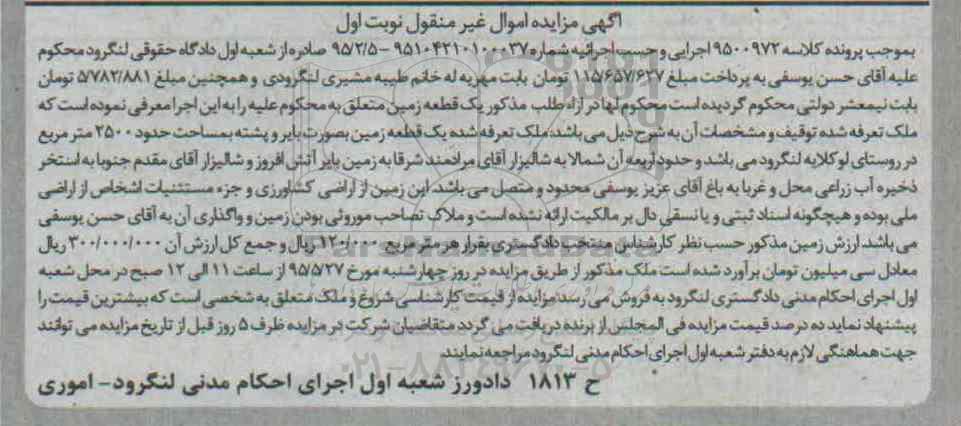 آگهی مزایده اموال غیر منقول نوبت اول
بموجب پرونده کلاسه ۹۵۰۰۹۷۲ اجرایی و حسب اجرائیه شماره ۹۵۱۰۴۲۱۰۱۰۰۰۳۷ - ۹۵/۲/۵ صادره از شعبه اول دادگاه حقوقی لنگرود محکوم
علیه آقای حسن یوسفی به پرداخت مبلغ ۱۱۵/۶۵۷/۶۲۷ تومان بابت مهریه له خانم طیبه مشیری لنگرودی و همچنین مبلغ ۵/۷۸۲/۸۸۱ تومان
بابت نیمعشر دولتی محکوم گردیده است محکوم لها در ازاء طلب مذکور یک قطعه زمین متعلق به محکوم علیه را به این اجرا معرفی نموده است که
ملک تعرفه شده توقیف و مشخصات آن به شرح ذیل می باشد: ملک تعرفه شده یک قطعه زمین بصورت بایر و پشته بمساحت حدود ۲۵۰۰ متر مربع
در روستای لوکلایه لنگرود می باشد و حدود اربعه آن شمالا به شالیزار آقای مرادمند شرقا به زمین بایر آتش افروز و شالیزار آقای مقدم جنوبا به استخر
ذخیره آب زراعی محل و غربا به باغ آقای عزیز یوسفی محدود و متصل می باشد. این زمین از اراضی کشاورزی و جزء مستثنیات اشخاص از اراضی
ملی بوده و هیچگونه اسناد ثبتی و یا نسقی دال بر مالکیت ارائه نشده است و ملاک تصاحب موروثی بودن زمین و واگذاری آن به آقای حسن یوسفی
می باشد. ارزش زمین مذکور حسب نظر کارشناس منتخب دادگستری بقرار هر متر مربع ۱۲۰/۰۰۰ ریال و جمع کل ارزش آن ۳۰۰/۰۰۰/۰۰۰ ریال
معادل سی میلیون تومان برآورد شده است ملک مذکور از طریق مزایده در روز چهارشنبه مورخ ۹۵/۵/۲۷ از ساعت ۱۱ الی ۱۲ صبح در محل شعبه
اول اجرای احکام مدنی دادگستری لنگرود به فروش می رسد مزایده از قیمت کارشناسی شروع و ملک متعلق به شخصی است که بیشترین قیمت را
پیشنهاد نماید ده درصد قیمت مزایده فی المجلس از برنده دریافت می گردد متقاضیان شرکت در مزایده ظرف ۵ روز قبل از تاریخ مزایده می توانند
جهت هماهنگی لازم به دفتر شعبه اول اجرای احکام مدنی لنگرود مراجعه نمایند.
ح ۱۸۱۳ دادورز شعبه اول اجرای احکام مدنی لنگرود - اموری